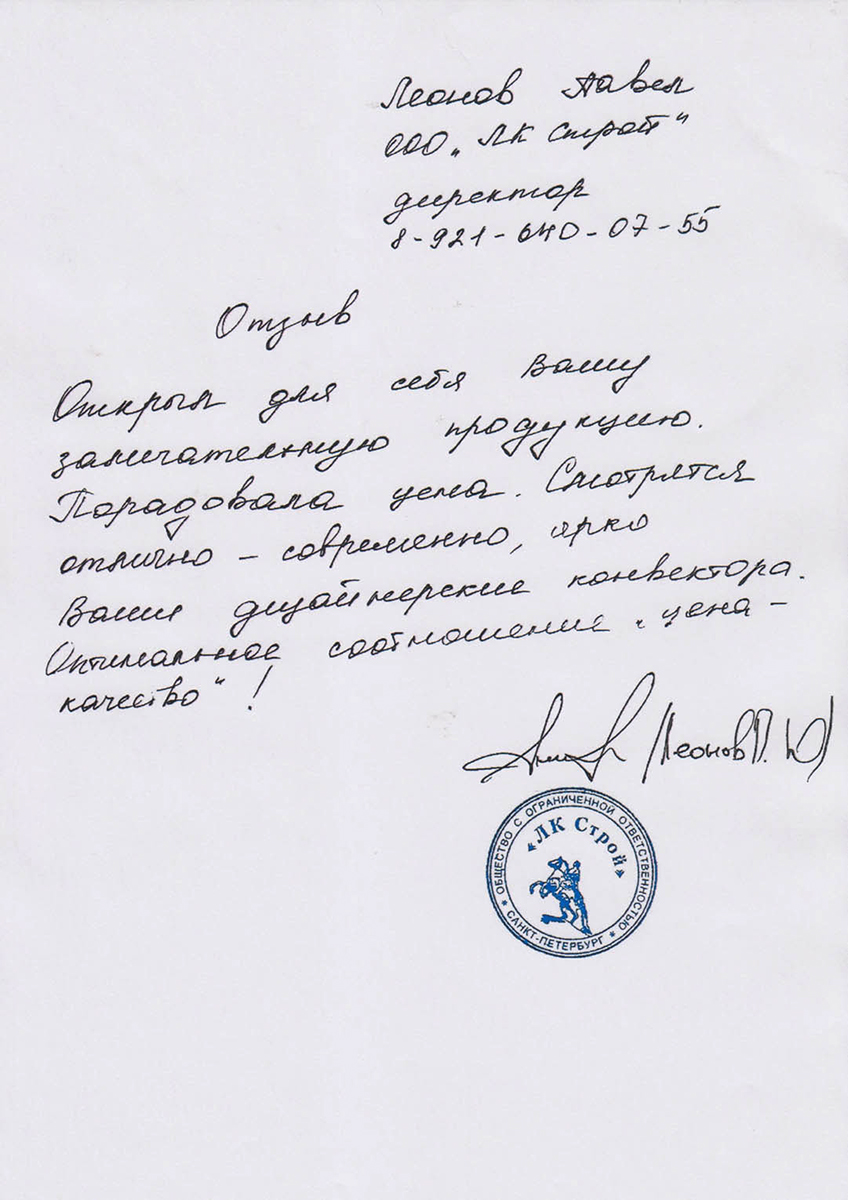 Леонов Павел
ООО „ЛК Строй"
директор
8-921-640-07-55
Отзыв
Открыл для себя Вашу
замечательную продукцию.
Порадовала цена. Смотрятся
отлично – современно, ярко
Ваши дизайнерские конвектора.
Оптимальное соотношение „цена –
качество"!
/Леонов П. Ю/
* ОБЩЕСТВО С ОГРАНИЧЕННОЙ ОТВЕТСТВЕННОСТЬЮ *
«ЛК Строй»
САНКТ-ПЕТЕРБУРГ